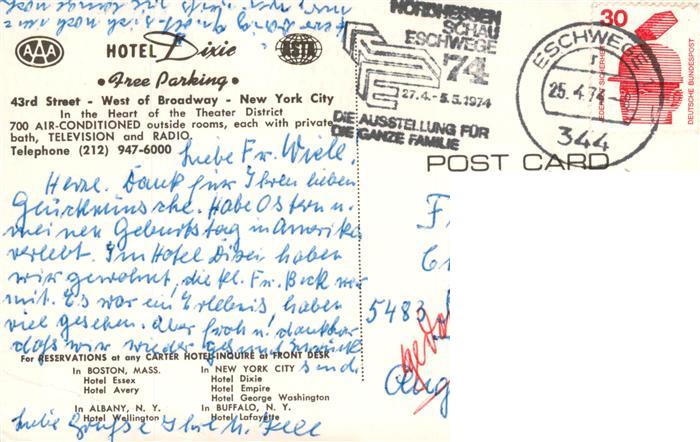 AAA
HOTEL Dixie
• Free Parking •
43rd Street - West of Broadway - New York City
In the Heart of the Theater District
700 AIR-CONDITIONED outside rooms, each with private
bath, TELEVISION and RADIO.
Telephone (212) 947-6000
NORDHESSEN
SCHAU
ESCHWEGE
'74
27.4.-5.5.1974
DIE AUSSTELLUNG FÜR
DIE GANZE FAMILIE
ESCHWEGE
25.4.74
344
30
DEUTSCHE BUNDESPOST
POST CARD
Liebe Fr. Wiele.
Herzl. Dank für Ihren lieben
Glückwünsche. Habe Ostern u.
meinen Geburtstag in Amerika
verlebt. Im Hotel Dixie haben
wir gewohnt, die kl. Fr. Beck war
mit. Es war ein Erlebnis haben
viel gesehen. Aber froh u. dankbar
daß wir wieder gesund zurück
sind.
5483
FOR RESERVATIONS at any CARTER HOTEL-INQUIRE at FRONT DESK
In BOSTON, MASS.
Hotel Essex
Hotel Avery
In NEW YORK CITY
Hotel Dixie
Hotel Empire
Hotel George Washington
In ALBANY, N. Y.
Hotel Wellington
In BUFFALO, N. Y.
Hotel Lafayette
Liebe Grüße Ihre